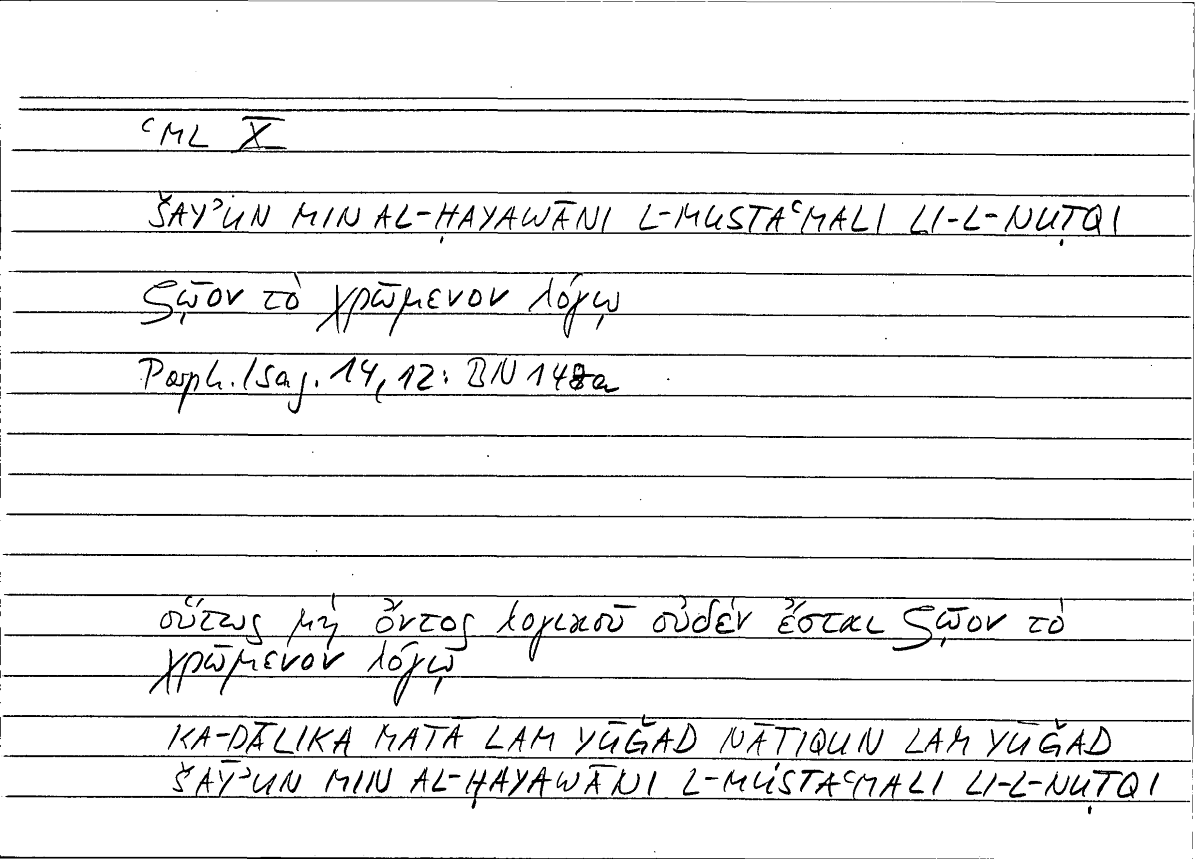 ʿML X
ŠAYʾUN MIN AL-ḤAYAWĀNI L-MUSTAʿMALI LI-L-NUṬQI
ζῷον τὸ χρώμενον λόγῳ
Porph. Isag. 14,12: BN 148a
οὕτως μὴ ὄντος λογικοῦ οὐδέν ἔσται ζῷον τὸ
χρώμενον λόγῳ
KA-DĀLIKA MATĀ LAM YŪǦAD NĀTIQUN LAM YŪǦAD
ŠAYʾUN MIN AL-ḤAYAWĀNI L-MUSTAʿMALI LI-L-NUṬQI